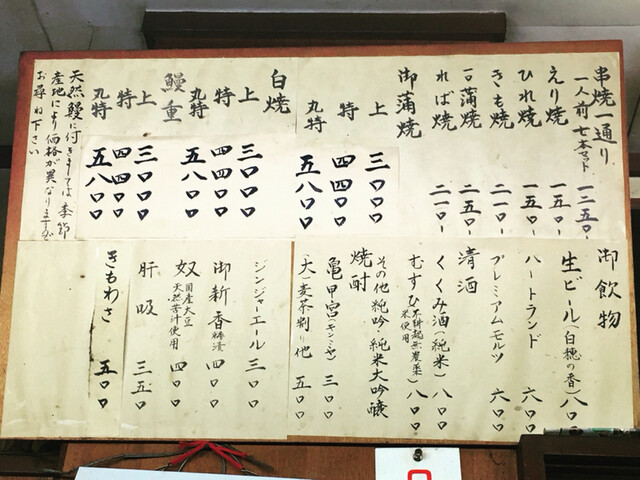 串焼一通り
一人前 七本セット 一二五〇
えり焼 一五〇
ひれ焼 一五〇
きも焼 二一〇
一口蒲焼 二五〇
れば焼 二一〇
御蒲焼
上 三〇〇〇
特 四四〇〇
丸特 五八〇〇
白焼
上 三〇〇〇
特 四四〇〇
丸特 五八〇〇
鰻重
上 三〇〇〇
特 四四〇〇
丸特 五八〇〇
天然鰻に付きましては 季節
産地により価格が異なりますので
お尋ね下さい
御飲物
生ビール(白穂の香) 八〇〇
ハートランド 六〇〇
プレミアムモルツ 六〇〇
清酒
くくみ酒(純米) 八〇〇
むすひ 米使用 八〇〇
その他 純吟 純米大吟醸
焼酎
亀甲宮(キッコーミヤ) 三〇〇
(大)麦茶割り他 五〇〇
ジンジャーエール 三〇〇
御新香 糠漬 四〇〇
奴 国産大豆 天然苦汁使用 四〇〇
肝吸 三五〇
きもわさ 五〇〇